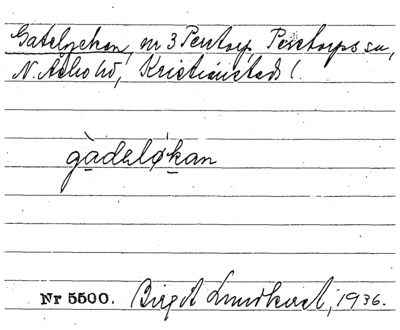 Gatelyckan, nr 3 Perstorp, Perstorps sn,
N. Åsbo hd, Kristianstads l.
gàdeløkan
Nr 5500. Birgit Lundkvist, 1936.